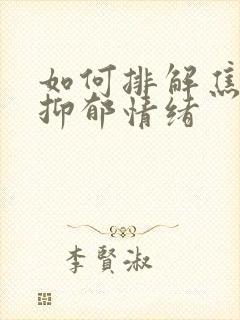 如何排解焦
抑郁情绪
李賢淑